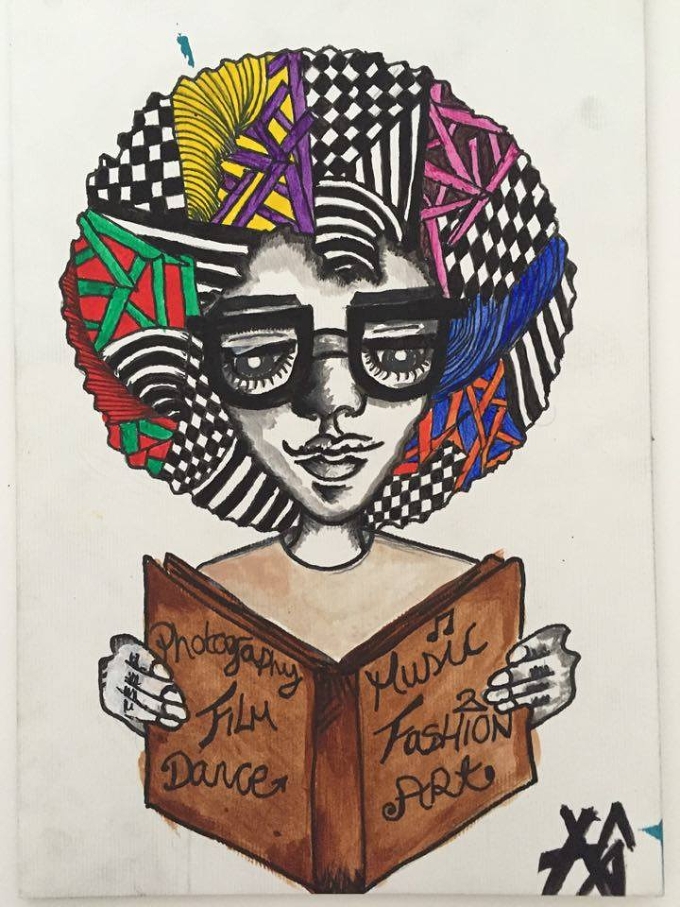 Photography
Film
Dance
Music
Fashion
Art